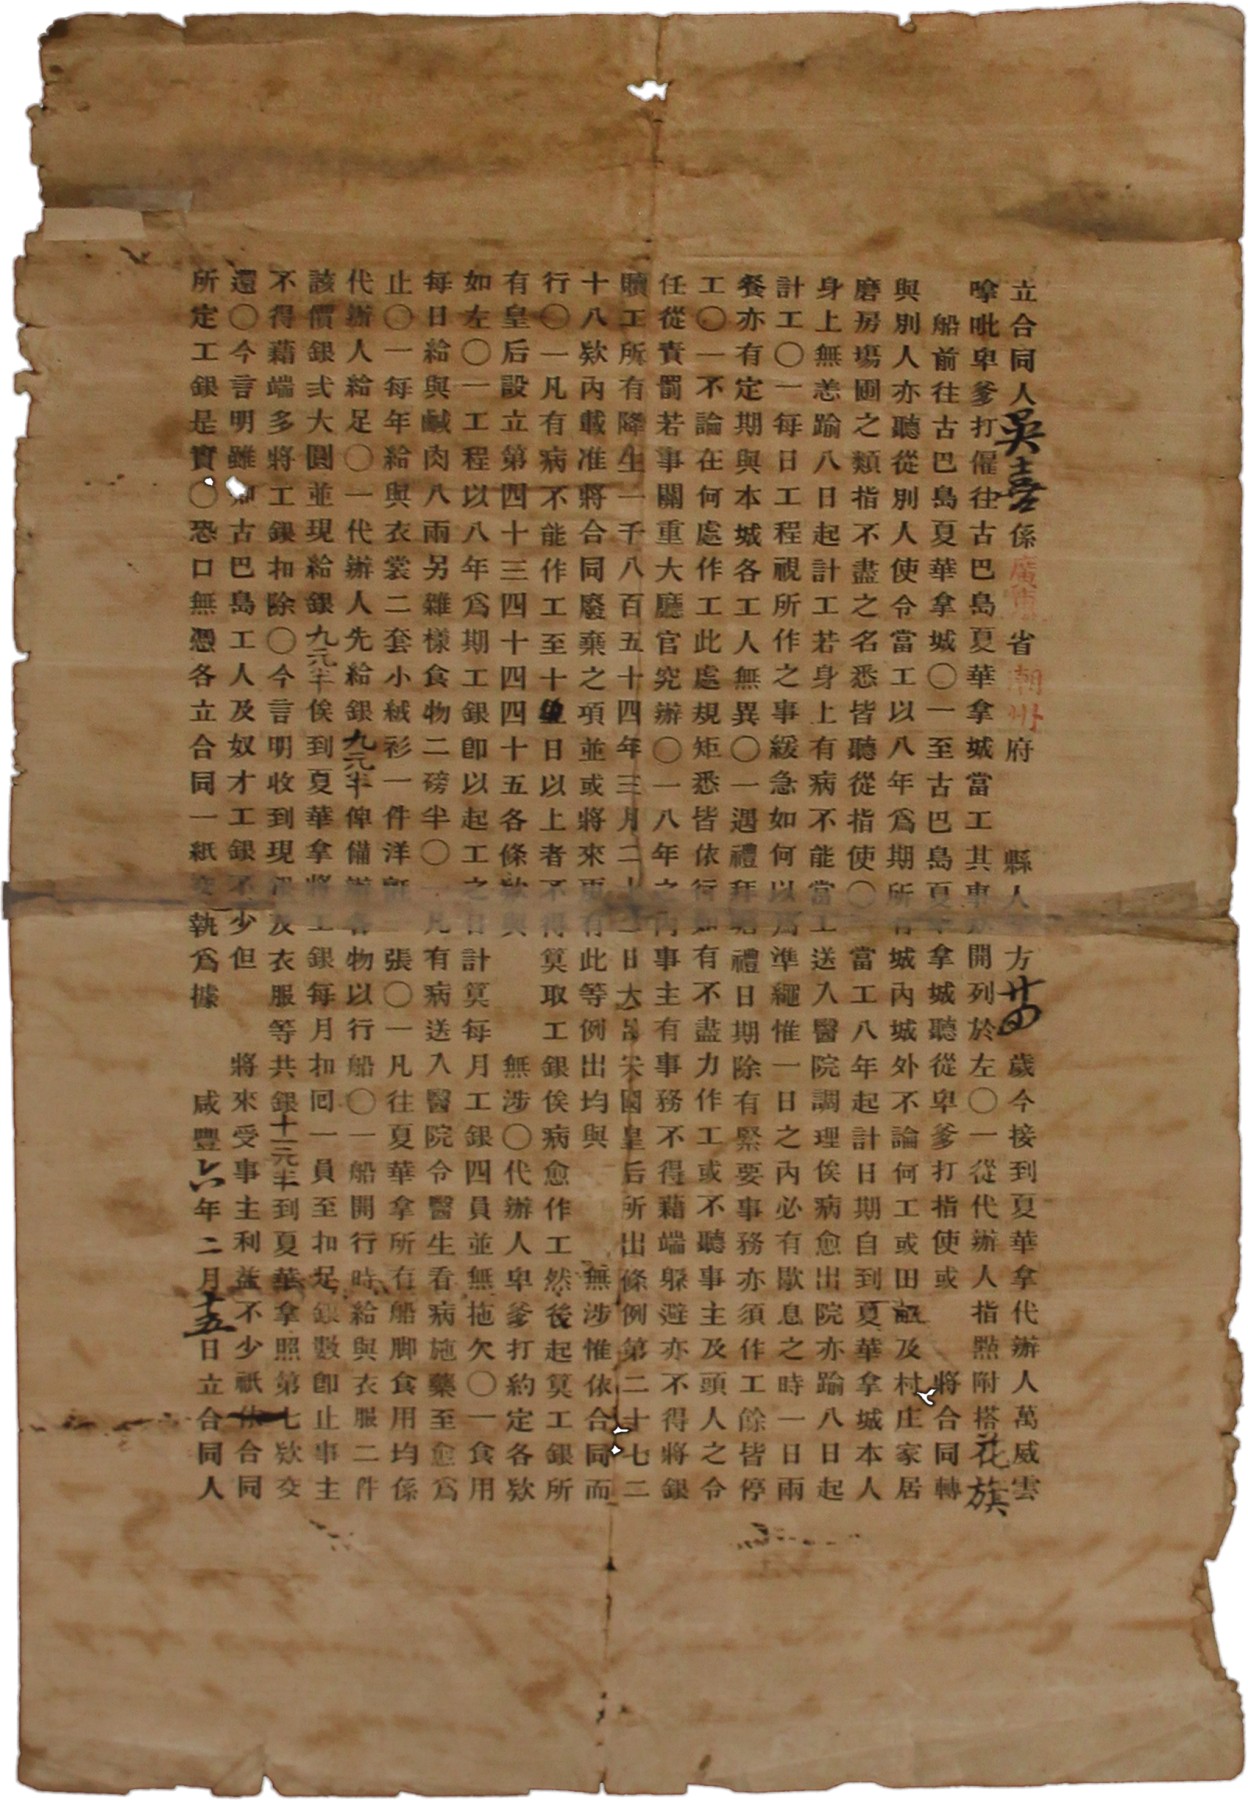 立合同人吳喜係廣東省潮州府　縣人　方廿四歲今接到夏華拿代辦人萬威雲
嗱吡卑爹打僱往古巴島夏華拿城當工其事　開列於左〇一從代辦人指點附搭花旗
船前往古巴島夏華拿城〇一至古巴島夏華拿城聽從卑爹打指使或　將合同轉
與別人亦聽從別人使令當工以八年爲期所有城內城外不論何工或田　及村庄家居
磨房塲圃之類指不盡之名悉皆聽從指使〇一當工八年起計日期自到夏華拿城本人
身上無恙踰八日起計工若身上有病不能當工送入醫院調理俟病愈出院亦踰八日起
計工〇一每日工程視所作之事緩急如何以爲準繩惟一日之內必有歇息之時一日兩
餐亦有定期與本城各工人無異〇一遇禮拜　禮日期除有緊要事務亦須作工餘皆停
工〇一不論在何處作工此處規矩悉皆依行如有不盡力作工或不聽事主及頭人之令
任從責罰若事關重大廳官究辦〇一八年之內事主有事務不得藉端躲避亦不得將銀
贖工所有降生一千八百五十四年三月二十二日大呂宋國皇后所出條例第二十七二
十八欵內載准將合同廢棄之項並或將來更有此等例出均與　無涉惟依合同而
行〇一凡有病不能作工至十五日以上者不得算取工銀俟病愈作工然後起算工銀所
有皇后設立第四十三四十四四十五各條欵與　無涉〇代辦人卑爹打約定各欵
如左〇一工程以八年爲期工銀卽以起工之日計算每月工銀四員並無拖欠〇一食用
每日給與鹹肉八兩另雜樣食物二磅半〇一凡有病送入醫院令醫生看病施藥至愈爲
止〇一每年給與衣裳二套小絨衫一件洋氈一張〇一凡往夏華拿所有船脚食用均係
代辦人給足〇一代辦人先給銀九元半俾備辦各物以行船〇一船開行時給與衣服二件
該價銀弍大圓並現給銀九元半俟到夏華拿將工銀每月扣囘一員至扣足銀數卽止事主
不得藉端多將工銀扣除〇今言明收到現銀及衣服等共銀十一元半到夏華拿照第七欵交
還〇今言明雖知古巴島工人及奴才工銀不少但　將來受事主利益不少祇依合同
所定工銀是實〇恐口無憑各立合同一紙交執爲據
咸豐六年二月十五日立合同人